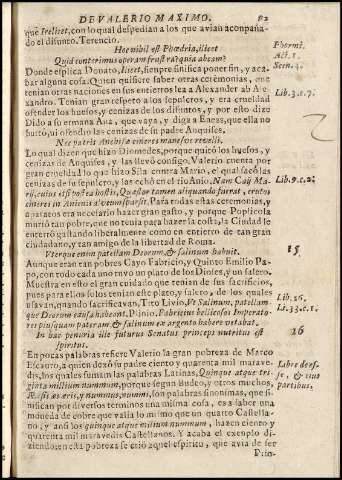 DE VALERIO MAXIMO. 82
que Ireliцet, con lo qual despedian a los que avian acompaña-
do el difunto. Terencio.
Hoc nihil est Phœdria, ilicet
Quid conterimus operam frustra? quin abeam?
Phormi.
Act. 1.
Scen. 4.
Donde esplica Donato, Ilicet, sienpre sinifica poner fin, y aca-
bar alguna cosa. Quien quisiere saber otras ceremonias, que
tenian otras naciones en sus entierros lea a Alexander ab Ale-
xandro. Tenian gran respeto a los sepulcros, y era crueldad
Lib. 3. c. 7.
ofender los huesos, y cenizas de los difuntos, y por esto dize
Dido a su ermana Ana, que vaya, y diga a Eneas, que ella no
hurtò, ni ofendio las cenizas de su padre Anquises.
Nec patris Anchisæ cineres manesve revelli.
Lo qual dizen que hizo Diomedes, porque quitò los huesos, y
cenizas de Anquises, y las llevò consigo. Valerio cuenta por
gran crueldad lo que hizo Sila contra Mario, el qual sacò las
cenizas de su sepulcro, y las echò en el rio Anio. Nam Caij Ma-
Lib. 9. c. 2.
rij, cuius etsi postea hostis, Quæstor tamen aliquando fuerat, erutos
cineres in Anienis alveum sparsit. Para todas estas ceremonias, y
aparatos era necesario hazer gran gasto, y porque Poplicola
murio tan pobre, que no tenia para hazer la costa, la Ciudad le
enterrò gastando liberalmente como en entierro de tan gran
ciudadano, y tan amigo de la libertad de Roma.
Uterque enim patellam Deorum, & salinum habuit.
15
Aunque eran tan pobres Cayo Fabricio, y Quinto Emilio Pa-
po, con todo cada uno tuvo un plato de los Dioses, y un salero.
Muestra en esto el gran cuidado que tenian de sus sacrificios,
pues para ellos solos tenian este plato, y salero, de los quales
usavan, quando sacrificavan, Tito Livio, Ut Salinum, patellam-
Lib. 26.
que Deorum causa habeant, Plinio. Fabricius bellicosos Imperato-
Li. 33. c. 1.
res plusquam pateram, & salinum ex argento habere vetabat.
In hac penuria ille futurus Senatus princeps nutritus est
16
spiritus.
En pocas palabras refiere Valerio la gran pobreza de Marco
Escauro, a quien dexò su padre ciento y quarenta mil marave-
dis, los quales suman las palabras Latinas, Quinque atque tri-
Libro de as-
ginta millium nummum, porque segun Budeo, y otros muchos,
se, & eius
Æs, & æris, y nummus, nummi, son palabras sinonimas, que si-
partibus.
nifican por diversos terminos una misma cosa, era saber una
moneda de cobre que valia lo mismo que un quarto Castella-
no, y ansi los quinque atque milium nummum, hazen ciento y
quarenta mil maravedis Castellanos. Y acaba el exemplo di-
ziendo: en esta pobreza se criò aquel espiritu, que avia de ser
Prin-